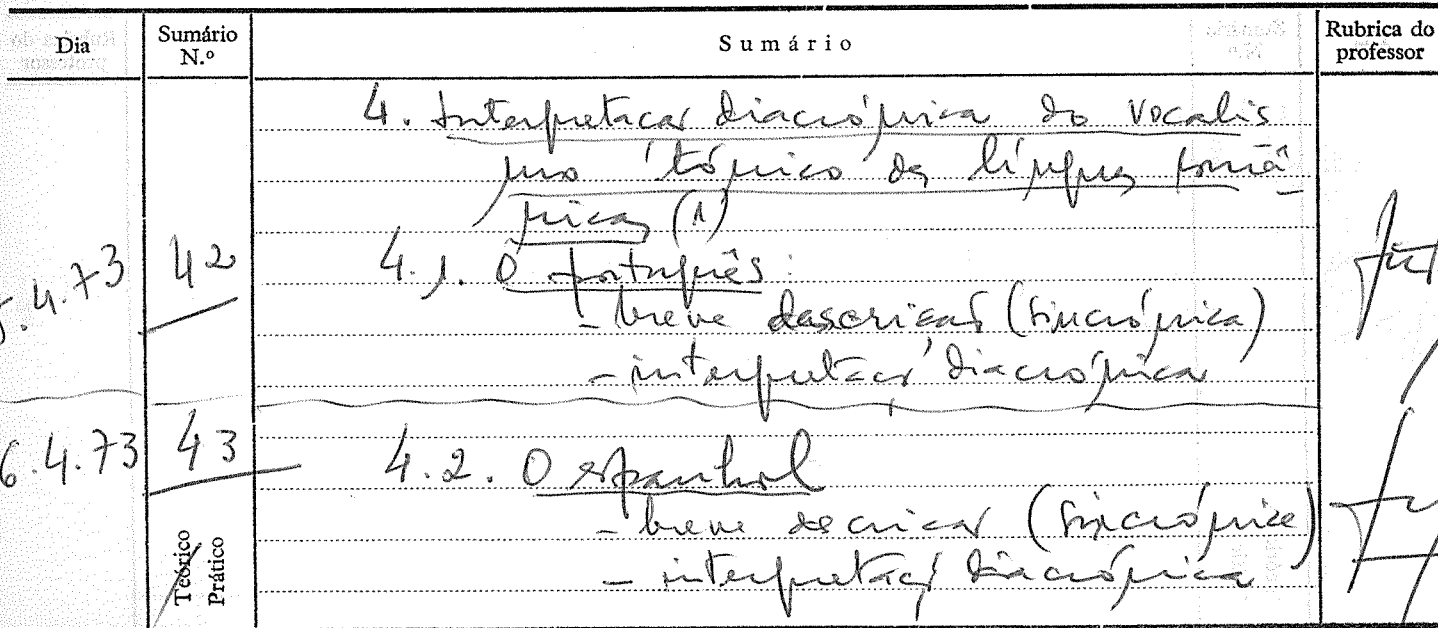 Dia
Sumário N.º
Sumário
Rubrica do professor
4. Interpretação diacrónica do vocalis
mo tónico das línguas româ
nicas (1)
5.4.73
42
4.1. O português:
- breve descrição (sincrónica)
- interpretação diacrónica
6.4.73
43
4.2. O espanhol
- breve descrição (sincrónica)
- interpretação diacrónica
Teórico
Prático